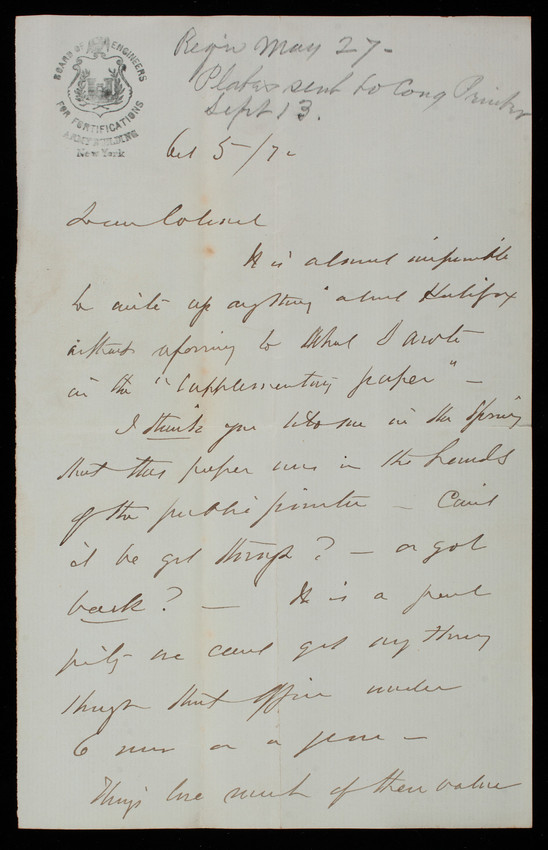 BOARD OF ENGINEERS
FOR FORTIFICATIONS
ARMY BUILDING
New York
Req'n May 27 -
Plates sent to Cong Printer
Sept 13.
Oct 5/72
Dear Colonel
It is almost impossible
to write up anything about Halifax
without referring to what I wrote
in the "Supplementary paper" -
I think you told me in the Spring
that this paper was in the hands
of the public printer - Can't
it be got through? - or got
back? - It is a great
pity we can't get anything
through that office under
6 mos or a year -
Things lose much of their value